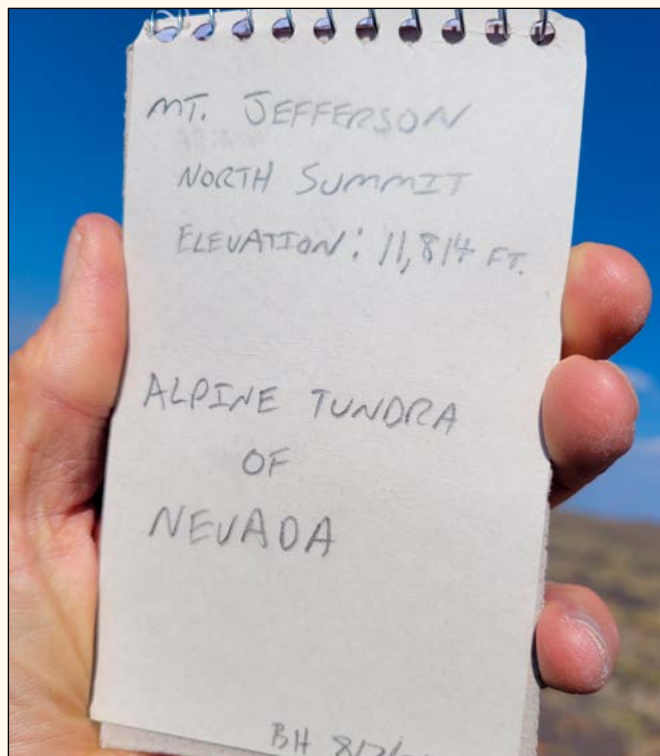 MT. JEFFERSON
NORTH SUMMIT
ELEVATION: 11,814 FT.
ALPINE TUNDRA
OF
NEVADA
BH